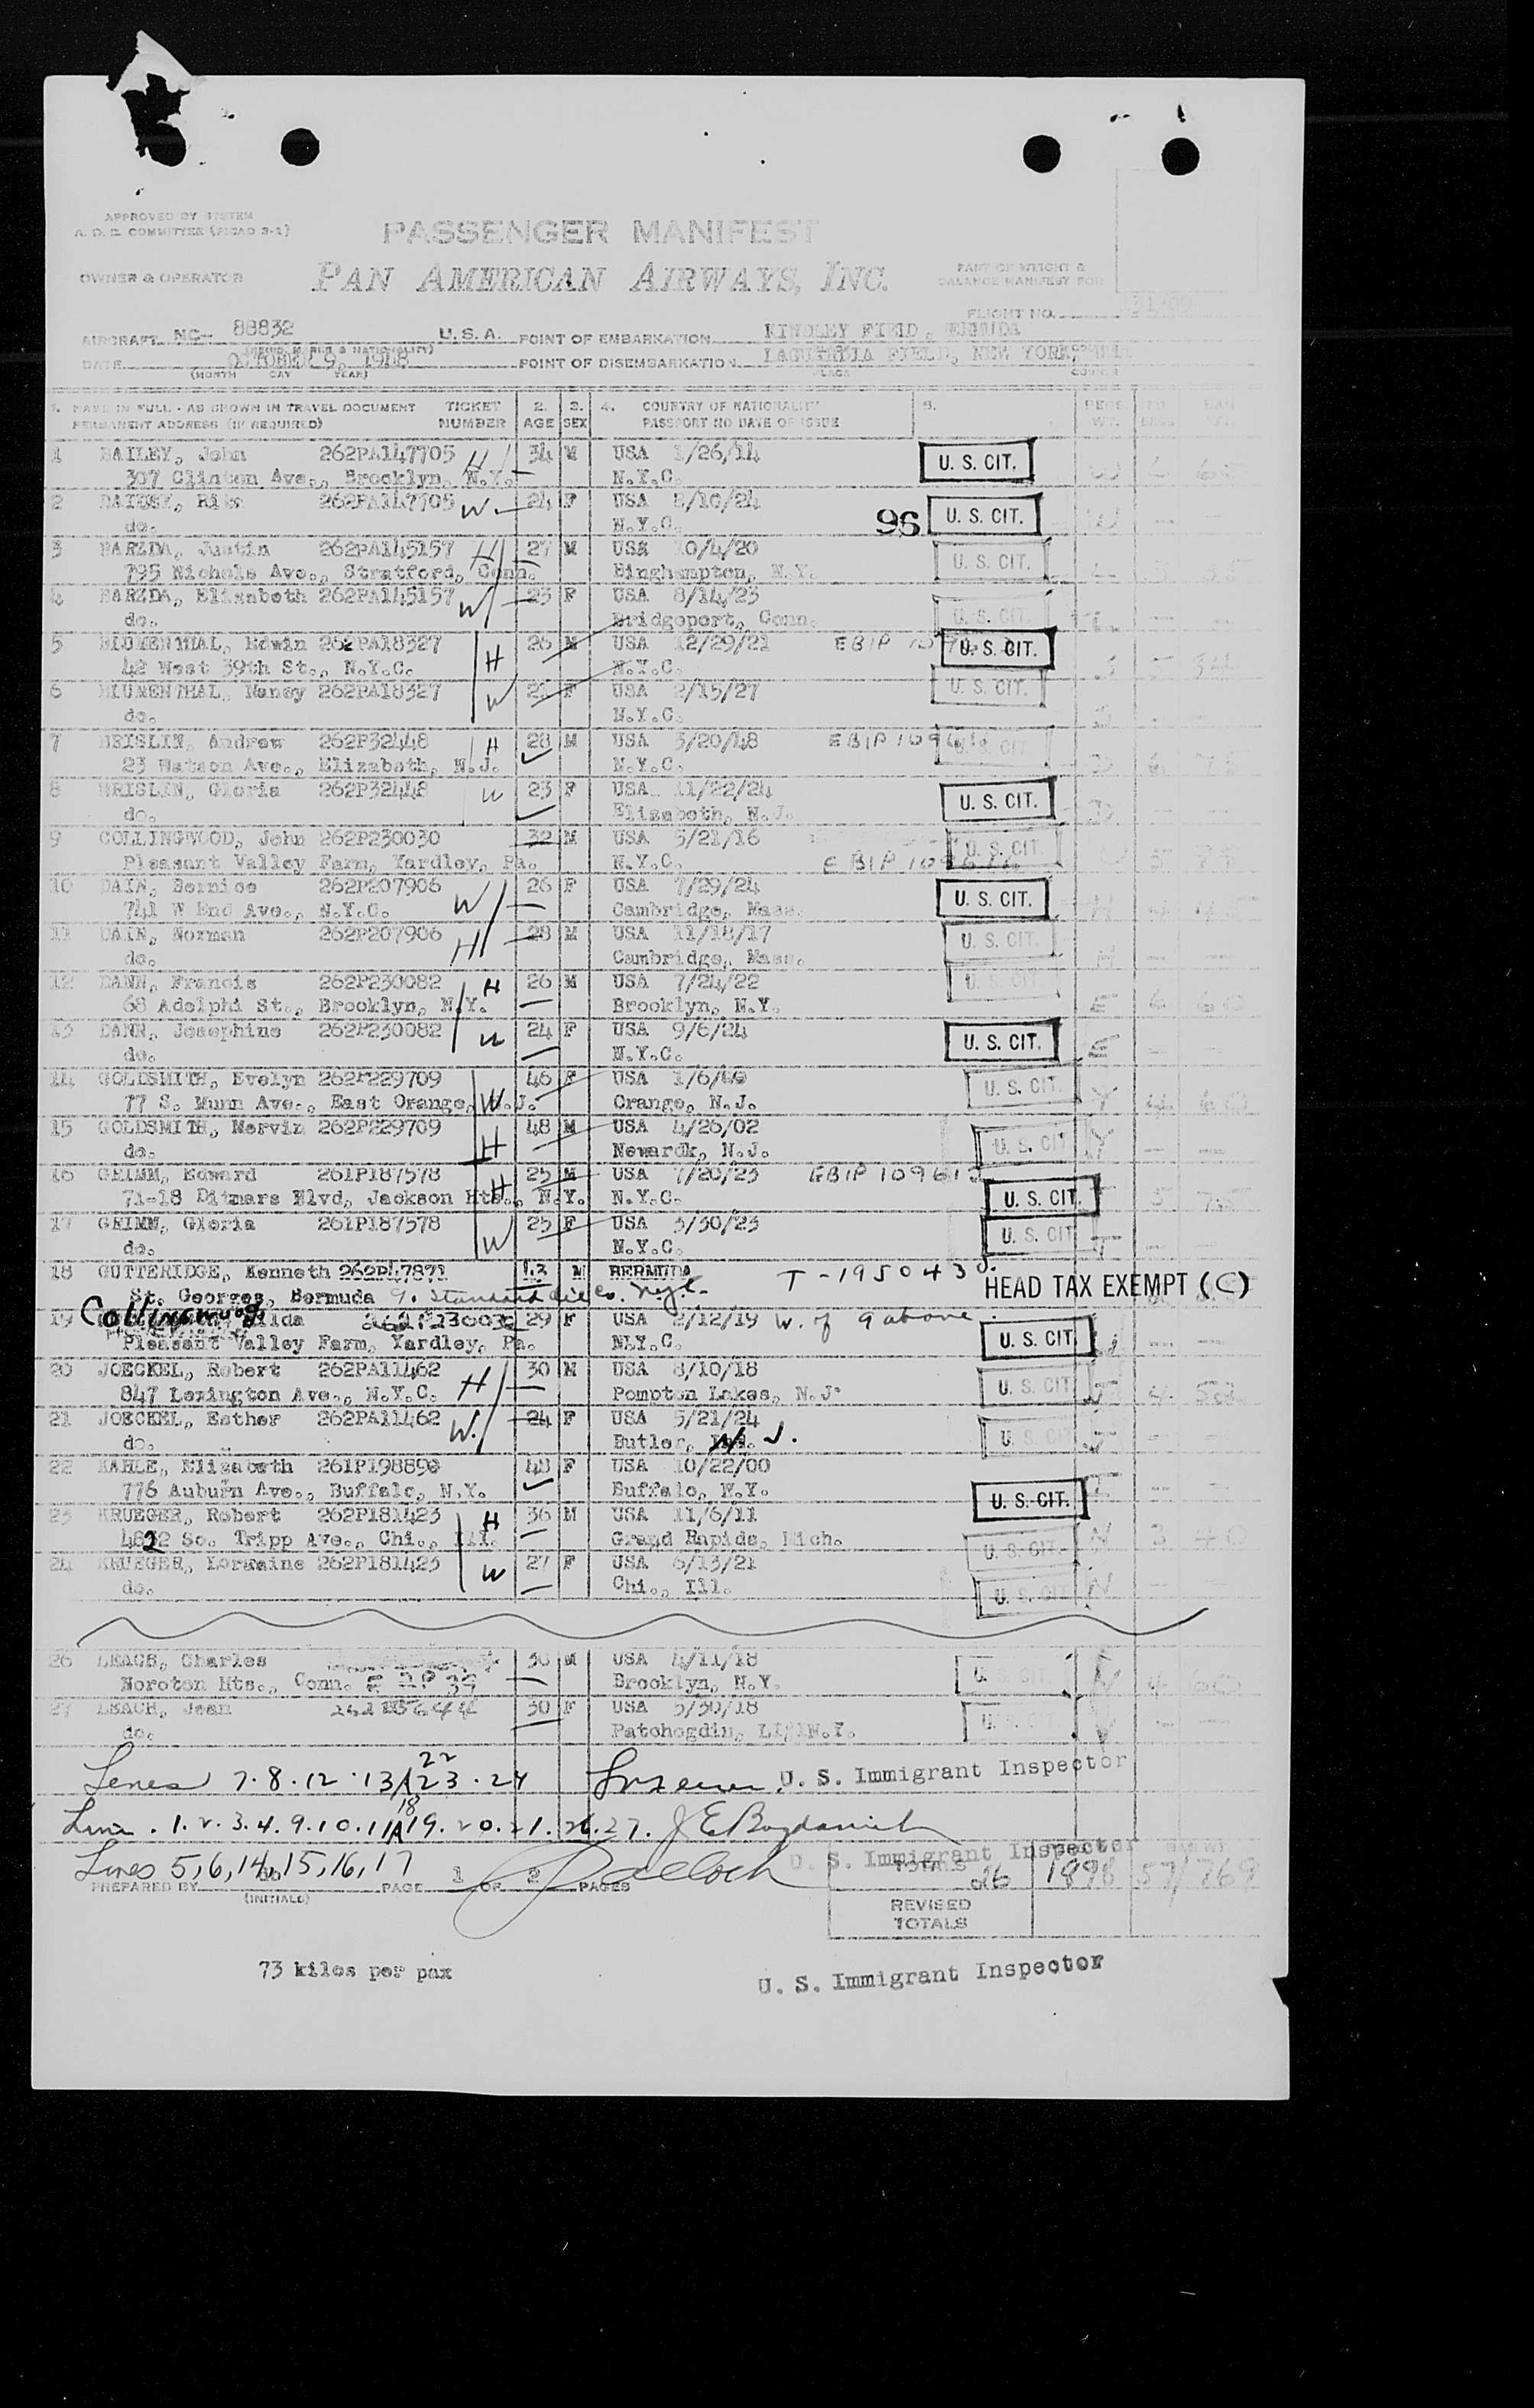 APPROVED BY SYSTEM
A. D. E. COMMITTEE (PICAO 3-1)
PASSENGER MANIFEST
OWNER & OPERATOR PAN AMERICAN AIRWAYS, INC. PART OF WEIGHT &
BALANCE MANIFEST FOR
FLIGHT NO.
AIRCRAFT NC- 88832 U.S.A. POINT OF EMBARKATION KINDLEY FIELD, BERMUDA
DATE OCTOBER 9, 1948 POINT OF DISEMBARKATION LAGUARDIA FIELD, NEW YORK,
(MONTH DAY YEAR) PLACE
1. NAME IN FULL - AS SHOWN IN TRAVEL DOCUMENT TICKET 2. 3. 4. COUNTRY OF NATIONALITY 5.
PERMANENT ADDRESS (IF REQUIRED) NUMBER AGE SEX PASSPORT NO DATE OF ISSUE
1 BAILEY, John 262PA147705 H 34 M USA 1/26/14 U. S. CIT.
307 Clinton Ave., Brooklyn, N.Y. N.Y.C.
2 BAILEY, 262PA147705 W 24 F USA 8/10/24 96 U. S. CIT.
do. N.Y.C.
3 BARZDA, Justin 262PA145157 H 27 M USA 10/4/20 U. S. CIT.
795 Nichols Ave., Stratford, Conn. Binghampton, N.Y.
4 BARZDA, Elizabeth 262PA145157 W 25 F USA 8/14/23 U. S. CIT.
do. Bridgeport, Conn.
5 BLUMENTHAL, Edwin 262PA18327 H 26 M USA 12/29/21 EBIP U. S. CIT.
42 West 39th St., N.Y.C. N.Y.C.
6 BLUMENTHAL, Nancy 262PA18327 W 21 F USA 2/15/27 U. S. CIT.
do. N.Y.C.
7 BRISLIN, Andrew 262P32448 H 28 M USA 3/20/48 EBIP U. S. CIT.
23 Watson Ave., Elizabeth, N.J. N.Y.C.
8 BRISLIN, Gloria 262P32448 W 23 F USA 11/22/24 U. S. CIT.
do. Elizabeth, N.J.
9 COLLINGWOOD, John 262P230030 32 M USA 5/21/16 U. S. CIT.
Pleasant Valley Farm, Yardley, Pa. N.Y.C. EBIP
10 DAIN, Bernice 262P207906 W 26 F USA 7/29/24 U. S. CIT.
741 W End Ave., N.Y.C. Cambridge, Mass.
11 DAIN, Norman 262P207906 H 28 M USA 11/18/17 U. S. CIT.
do. Cambridge, Mass.
12 DANN, Francis 262P230082 H 26 M USA 7/24/22 U. S. CIT.
68 Adelphi St., Brooklyn, N.Y. Brooklyn, N.Y.
13 DANN, Josephine 262P230082 W 24 F USA 9/6/24 U. S. CIT.
do. N.Y.C.
14 GOLDSMITH, Evelyn 262P229709 W 46 F USA 1/6/ U. S. CIT.
77 S. Munn Ave., East Orange, N.J. Orange, N.J.
15 GOLDSMITH, Mervin 262P229709 H 48 M USA 4/26/02 U. S. CIT
do. Newardk, N.J.
16 GRIMM, Edward 261P187578 H 25 M USA 7/20/23 EBIP 109612
71-18 Ditmars Blvd, Jackson Hts., N.Y. N.Y.C. U. S. CIT.
17 GRIMM, Gloria 261P187578 W 25 F USA 3/30/23 U. S. CIT
do. N.Y.C.
18 GUTTERIDGE, Kenneth 262P147871 43 M BERMUDA T-1950430 HEAD TAX EXEMPT (C)
St. Georges, Bermuda
19 Collingwood, ilda 262P230030 29 F USA 2/12/19 W. of 9 above U. S. CIT.
Pleasant Valley Farm, Yardley, Pa. N.Y.C.
20 JOECKEL, Robert 262PA11462 H 30 M USA 8/10/18 U. S. CIT
847 Lexington Ave., N.Y.C. Pompton Lakes, N.J.
21 JOECKEL, Esther 262PA11462 W. 24 F USA 5/21/24 U. S. CIT
do. Butler, N. J.
22 KAHLE, Elizabeth 261P198890 48 F USA 10/22/00
776 Auburn Ave., Buffalo, N.Y. Buffalo, N.Y. U. S. CIT.
23 KRUEGER, Robert 262P181423 H 36 M USA 11/6/11
4822 So. Tripp Ave., Chi., Ill. Grand Rapids, Mich. U. S. CIT.
24 KRUEGER, Lorraine 262P181423 W 27 F USA 6/13/21
do. Chi., Ill. U. S. CIT
26 LEACH, Charles 30 M USA 4/11/18 U. S. CIT
Noroton Hts., Conn. Brooklyn, N.Y.
27 LEACH, Jean 30 F USA 5/30/18 U. S. CIT
do. Patchogdin, LI N.Y.
Lines 7.8.12.13 22 23.24 U. S. Immigrant Inspector
Line . 1.2.3.4.9.10.11 18 19.20.21.26.27.
Lines 5,6,14,15,16,17 U. S. Immigrant Inspector
PREPARED BY (INITIALS) PAGE 1 OF 2 PAGES TOTALS 26 1898 57/769
REVISED
TOTALS
73 kilos per pax
U. S. Immigrant Inspector